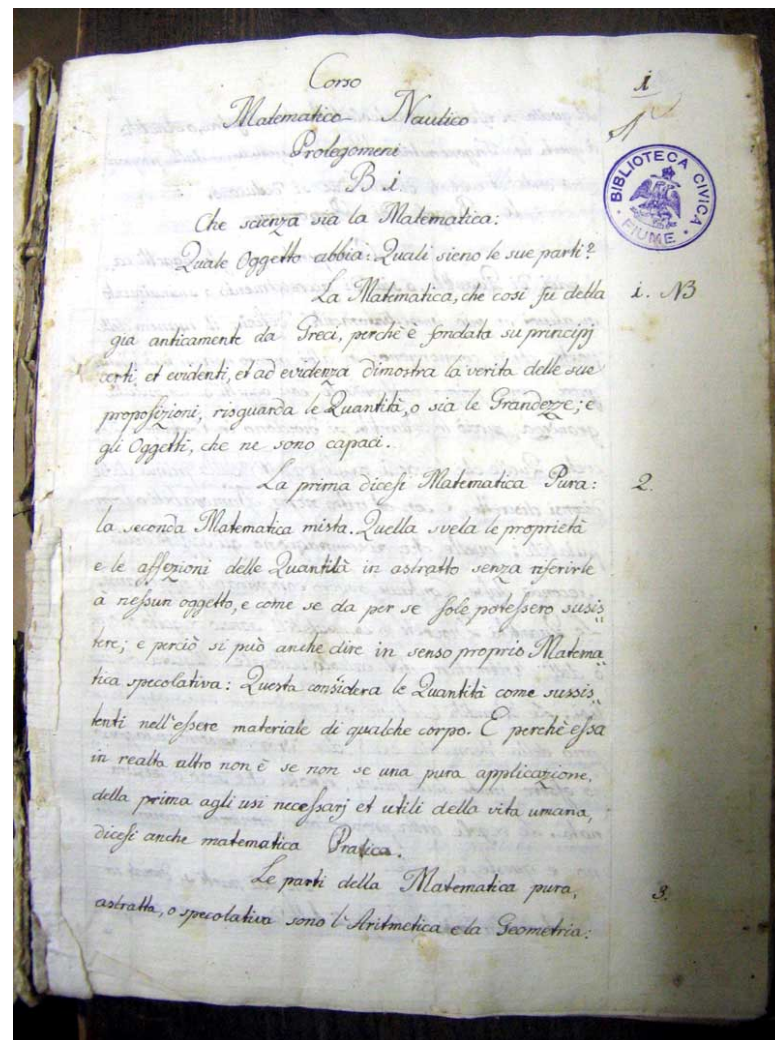 Corso
1
Matematico Nautico
Prolegomeni
B i
Che scienza sia la Matematica:
Quale Oggetto abbia: Quali sieno le sue parti?
BIBLIOTECA CIVICA
· FIUME ·
La Matematica, che così fu detta
i. NB
gia anticamente da Greci, perchè è fondata su principj
certi, et evidenti, et ad evidenza dimostra la verita delle sue
proposizioni, risguarda le Quantità, o sia le Grandezze; e
gli Oggetti, che ne sono capaci.
La prima dicesi Matematica Pura:
2.
la seconda Matematica mista. Quella svela le proprietà
e le affezioni delle Quantità in astratto senza riferirle
à nessun oggetto, e come se da per se sole potessero susis
tere; e perciò si può anche dire in senso proprio Matema
tica specolativa: Questa considera le Quantità come sussis
tenti nell'essere materiale di qualche corpo. E perchè essa
in realta altro non è se non se una pura applicazione,
della prima agli usi necessarj et utili della vita umana,
dicesi anche matematica Pratica.
Le parti della Matematica pura,
3.
astratta, o specolativa sono l'Aritmetica e la Geometria: